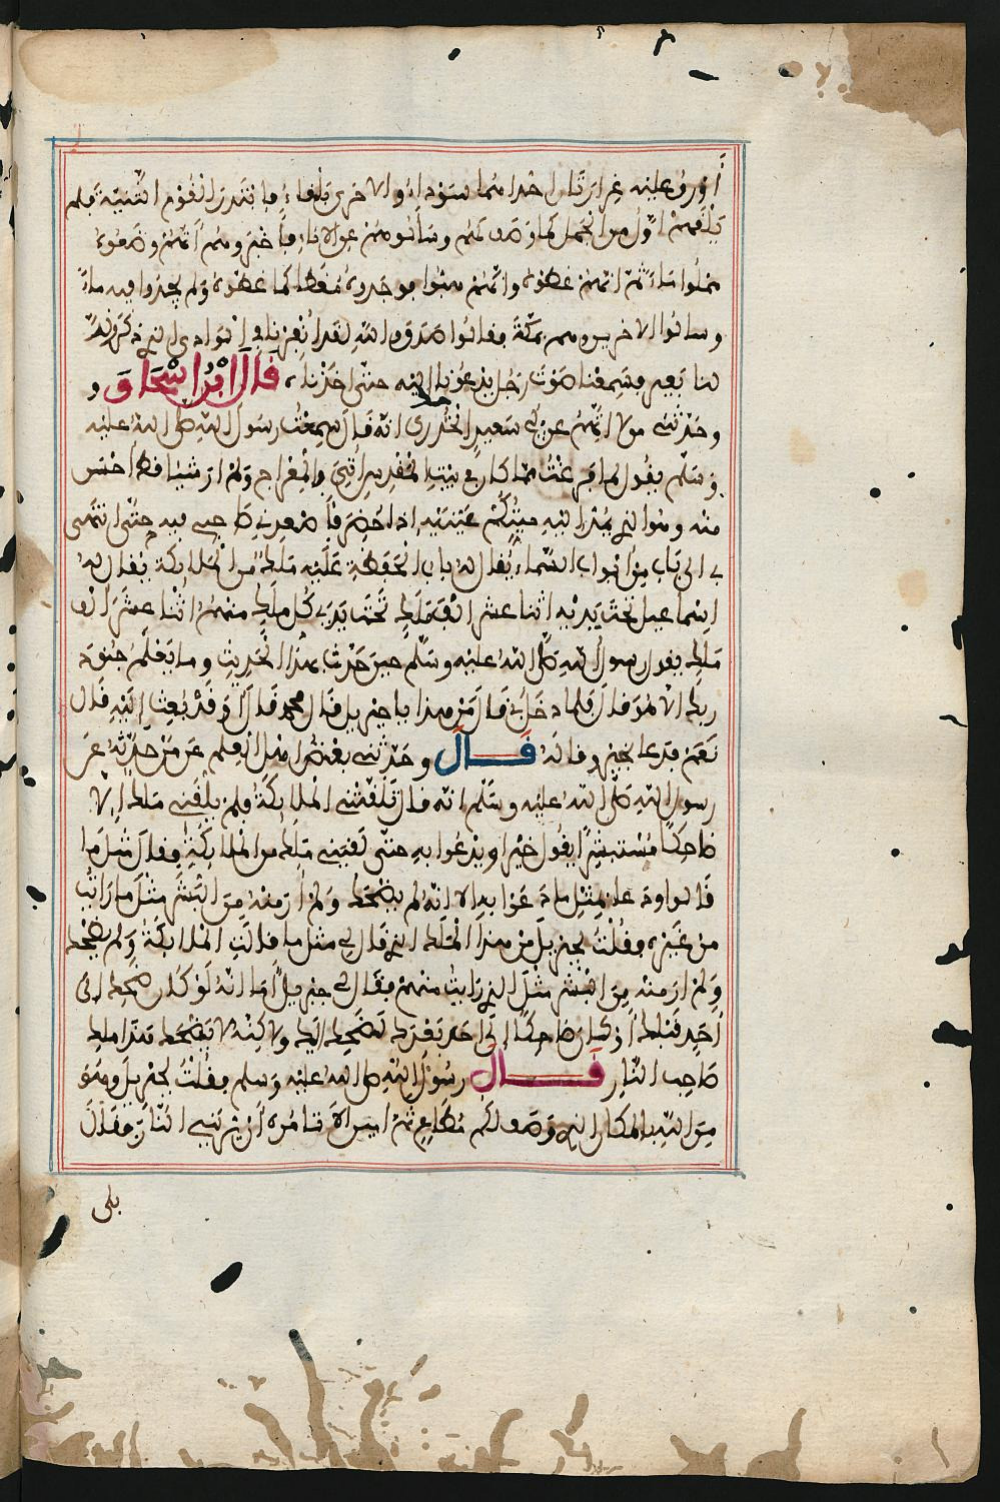 أورق عليه غرارتان احداهما سوداء والاخرى بلقاء فابتدر القوم الثنية فلم
يلقهم اول من الجمل كما وصف لهم وسألوهم عن الاناء فأخبروهم أنهم وضعوه
مملوا ماء ثم انهم غطوه وانهم هبوا فوجدوه مغطا كما غطوه ولم يجدوا فيه ماء
وسالوا الاخرين وهم بمكة فقالوا صدق والله لقد انفرنا في الوادي الذي ذكر وند
لنا بعير فسمعنا صوت رجل يدعونا اليه حتى اخذناه قال ابن اسحاق و
وحدثني من لا اتهم عن ابي سعيد الخدري انه قال سمعت رسول الله صلى الله عليه
وسلم يقول لما فرغت مما كان في بيت المقدس اتي بالمعراج ولم ار شيئا قط احسن
منه وهو الذي يمد اليه ميتكم عينيه اذا حضر فاصعدني صاحبي فيه حتى انتهى
بي الى باب من ابواب السماء يقال له باب الحفظة عليه ملك من الملائكة يقال له
اسماعيل تحت يديه اثنا عشر الف ملك تحت يدي كل ملك منهم اثنا عشر الف
ملك يقول رسول الله صلى الله عليه وسلم حين حدث بهذا الحديث وما يعلم جنود
ربك الا هو قال فلما دخل بي قال من هذا يا جبريل قال محمد قال او قد بعث اليه قال
نعم فدعا لي بخير وقاله قال وحدثني بعض اهل العلم عن من حدثه عن
رسول الله صلى الله عليه وسلم انه قال تلقتني الملائكة فلم يلقني ملك الا
ضاحكا مستبشرا يقول خيرا ويدعوا به حتى لقيني ملك من الملائكة فقال مثل ما
قالوا ودعا بمثل ما دعوا به الا انه لم يضحك ولم ار منه من البشر مثل ما رايت
من غيره فقلت لجبريل من هذا الملك الذي قال لي مثل ما قالت الملائكة ولم يضحك
ولم ار منه من البشر مثل الذي رايت منهم فقال لي جبريل أما انه لو كان ضحك الى
أحد قبلك أو كان ضاحكا الى احد بعدك لضحك اليك ولاكنه لا يضحك هذا ملك
صاحب النار قال رسول الله صلى الله عليه وسلم فقلت لجبريل وهو
من الله بالمكان الذي وصف لكم مطاع ثم امين الا تامره أن يريني النار فقال
بلى